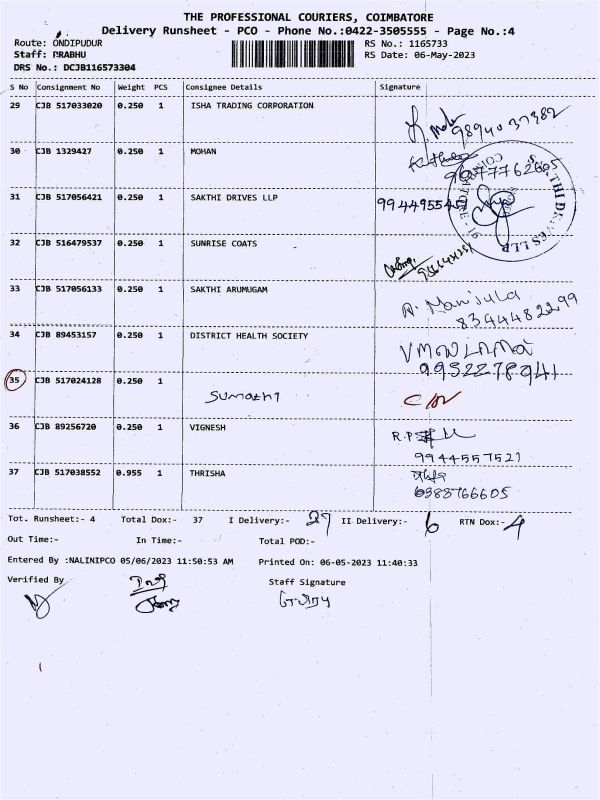 THE PROFESSIONAL COURIERS, COIMBATORE
Delivery Runsheet - PCO - Phone No.:0422-3505555 - Page No.:4
Route: ONDIPUDUR RS No.: 1165733
Staff: PRABHU RS Date: 06-May-2023
DRS No.: DCJB116573304
S No Consignment No Weight PCS Consignee Details Signature
29 CJB 517033020 0.250 1 ISHA TRADING CORPORATION
9894037382
30 CJB 1329427 0.250 1 MOHAN
31 CJB 517056421 0.250 1 SAKTHI DRIVES LLP
32 CJB 516479537 0.250 1 SUNRISE COATS
33 CJB 517056133 0.250 1 SAKTHI ARUMUGAM A. Manjula
8344482299
34 CJB 89453157 0.250 1 DISTRICT HEALTH SOCIETY
9952278941
35 CJB 517024128 0.250 1
Sumathi
36 CJB 89256720 0.250 1 VIGNESH
9944557521
37 CJB 517038552 0.955 1 THRISHA
6383766605
Tot. Runsheet:- 4 Total Dox:- 37 I Delivery:- 27 II Delivery:- 6 RTN Dox:- 4
Out Time:- In Time:- Total POD:-
Entered By :NALINIPCO 05/06/2023 11:50:53 AM Printed On: 06-05-2023 11:40:33
Verified By Staff Signature